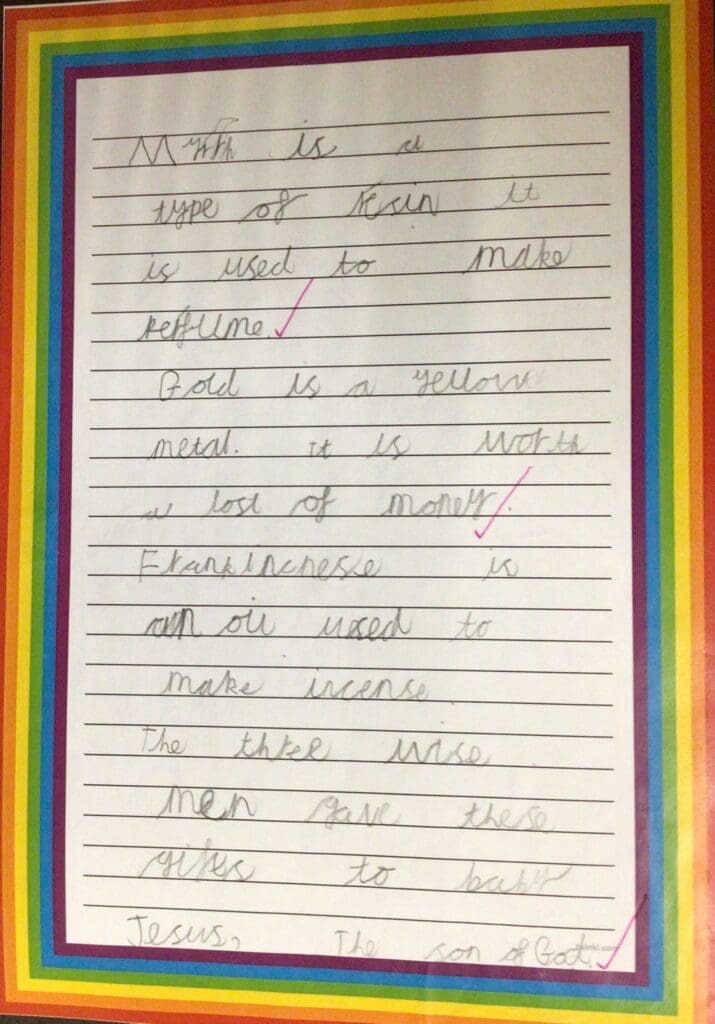 Myrrh is a
type of resin it
is used to make
perfume.
Gold is a yellow
metal. it is worth
a lost of money.
Frankincnesce is
an oil used to
make incense.
The three wise
men gave these
gifts to baby
Jesus, The son of God.